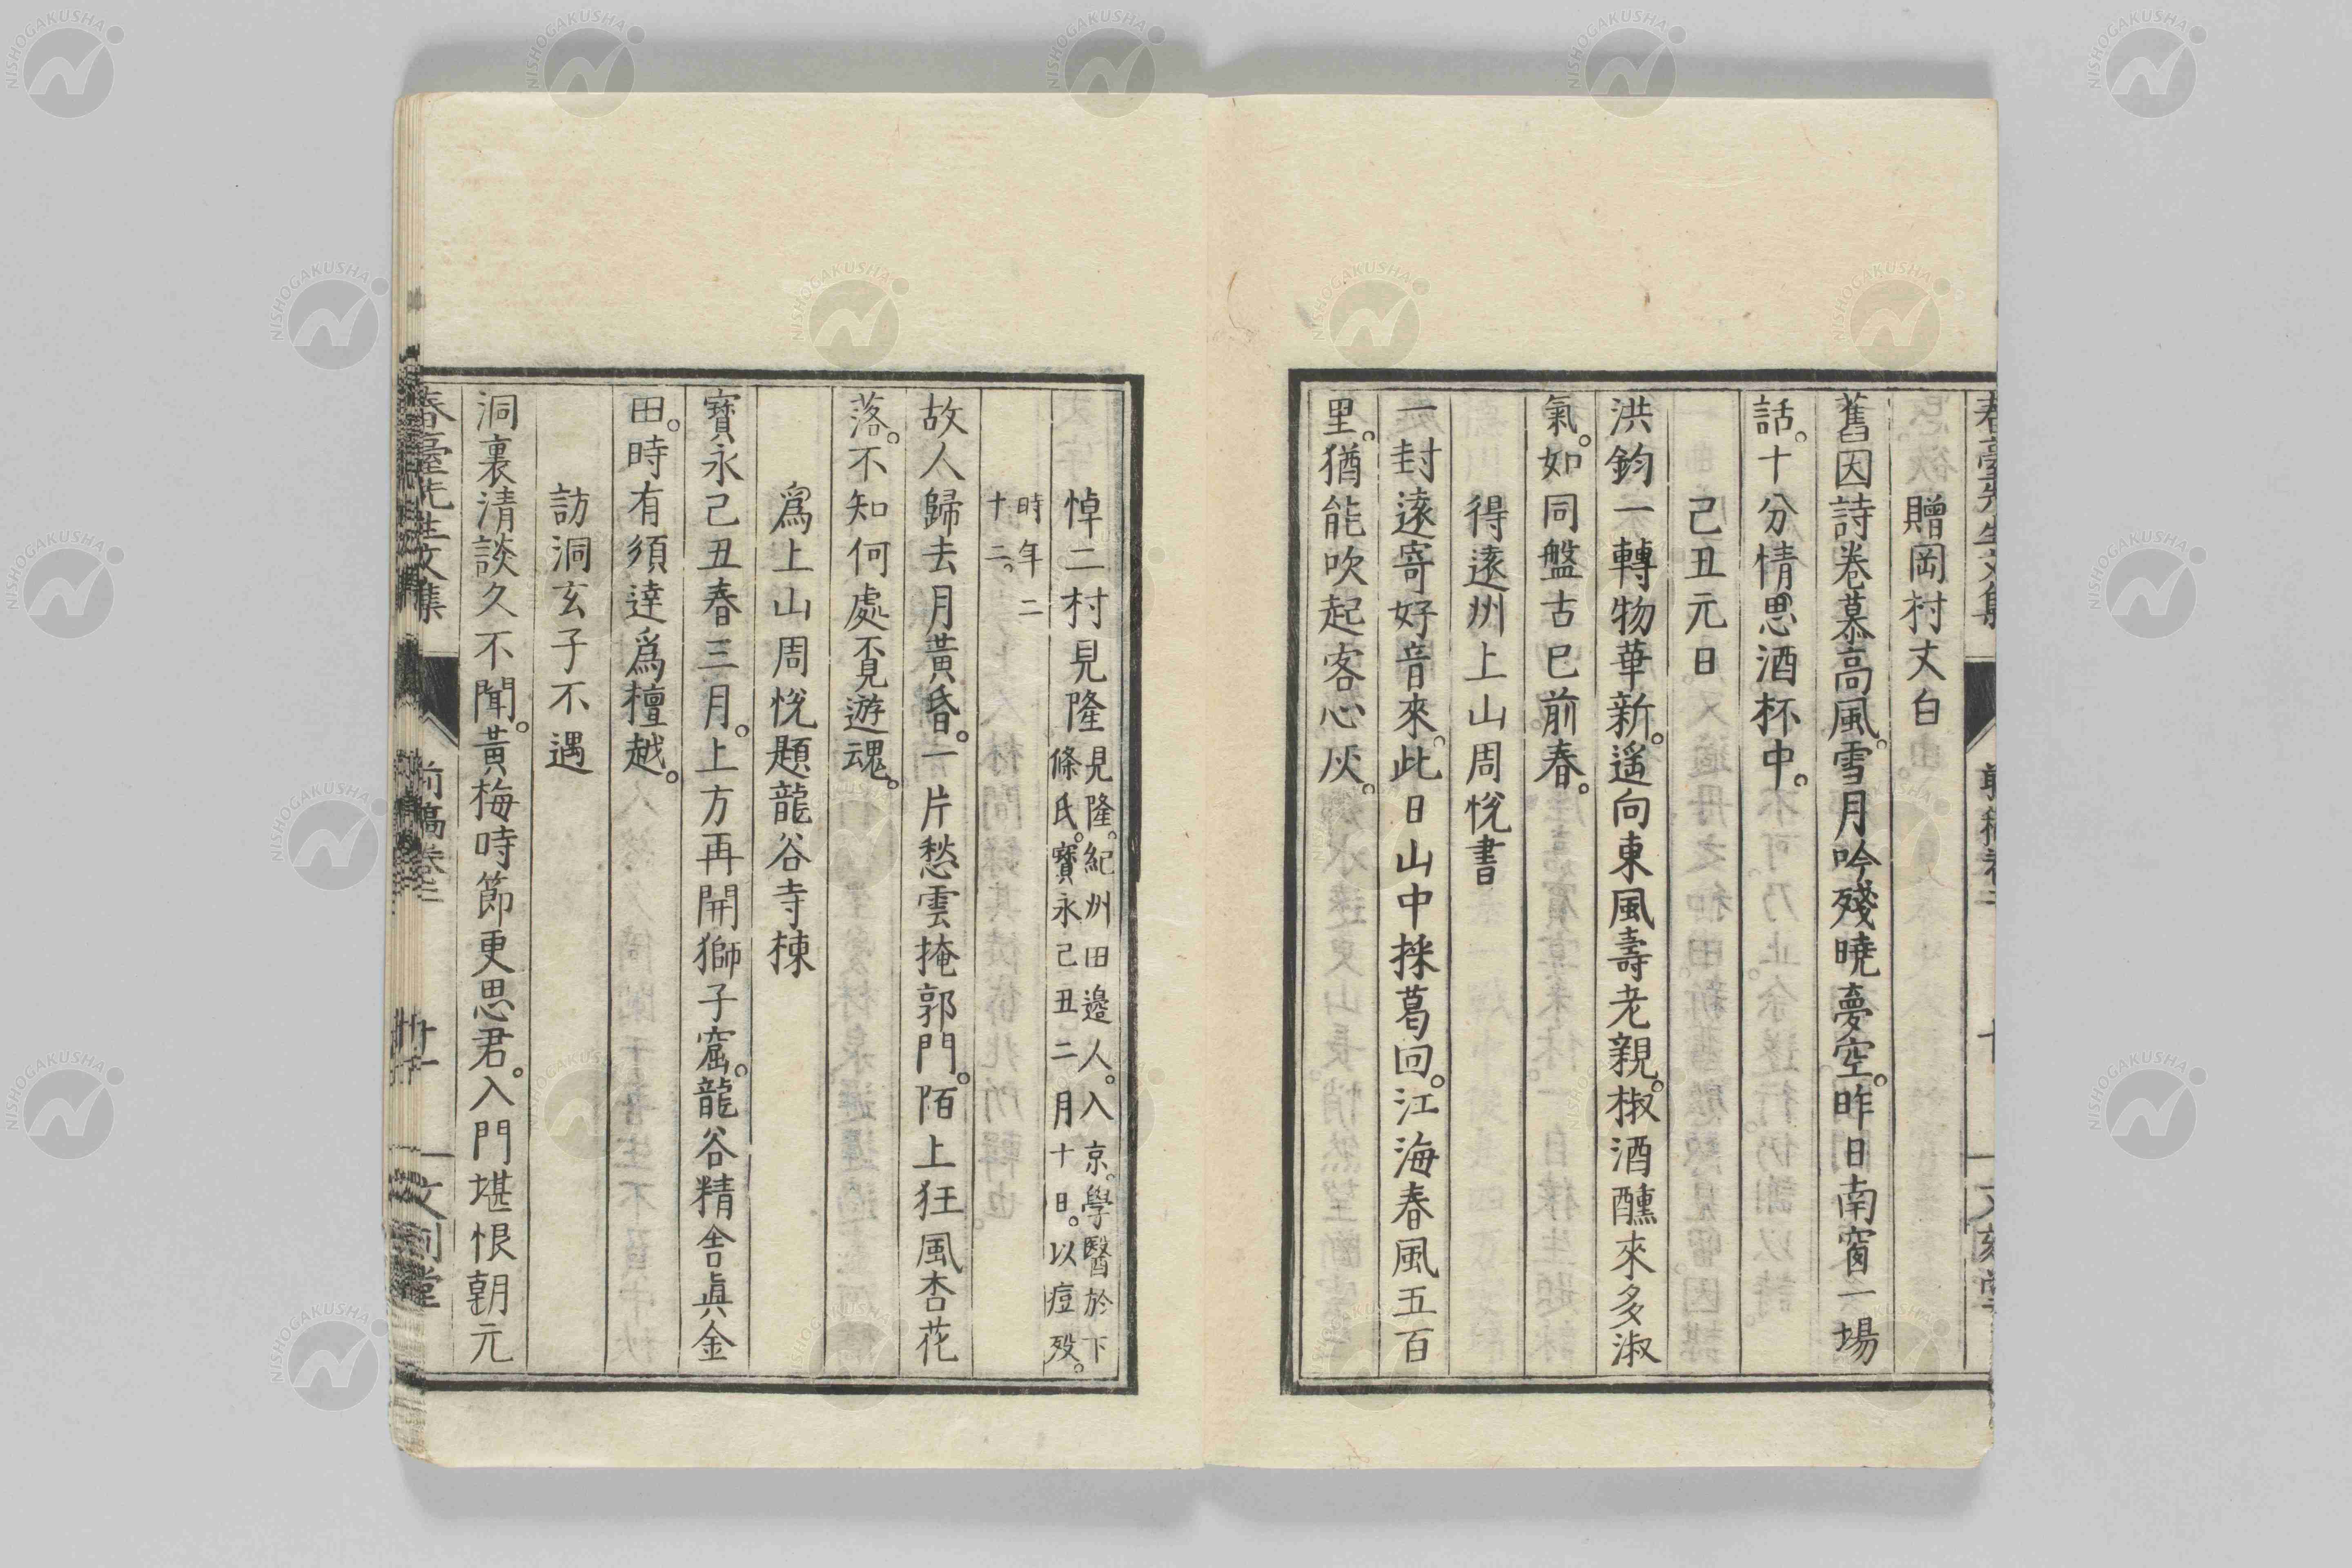 贈岡村丈白
舊因詩卷慕高風。雪月吟殘曉夢空。昨日南窗一場
話。十分情思酒杯中。
己丑元日
洪鈞一轉物華新。遙向東風壽老親。椒酒醺來多淑
氣。如同盤古巳前春。
得遠州上山周悅書
一封遠寄好音來。此日山中採葛回。江海春風五百
里。猶能吹起客心灰。
悼二村見隆 見隆。紀州田邊人。入京。學醫於下
條氏。寶永己丑二月十日。以痘歿。
時年二
十二。
故人歸去月黃昏。一片愁雲掩郭門。陌上狂風杏花
落。不知何處覓遊魂。
爲上山周悅題龍谷寺棟
寶永己丑春三月。上方再開獅子窟。龍谷精舍眞金
田。時有須達爲檀越。
訪洞玄子不遇
洞裏清談久不聞。黃梅時節更思君。入門堪恨朝元
春臺先生文集
前稿卷二
NISHOGAKUSHA